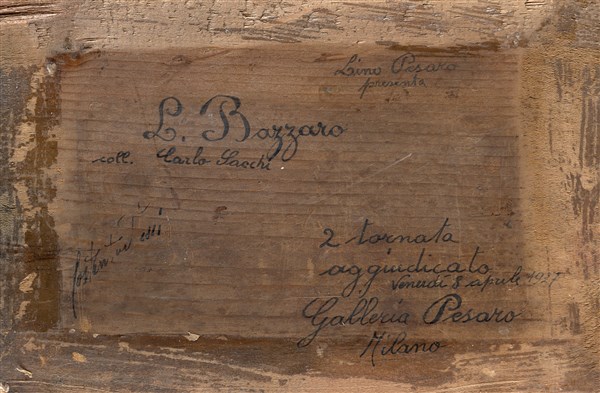 Lino Pesaro
presenta
L. Bazzaro
coll. Carlo Sacchi
2 tornata
aggiudicato
Venerdì 8 aprile 1927
Galleria Pesaro
Milano